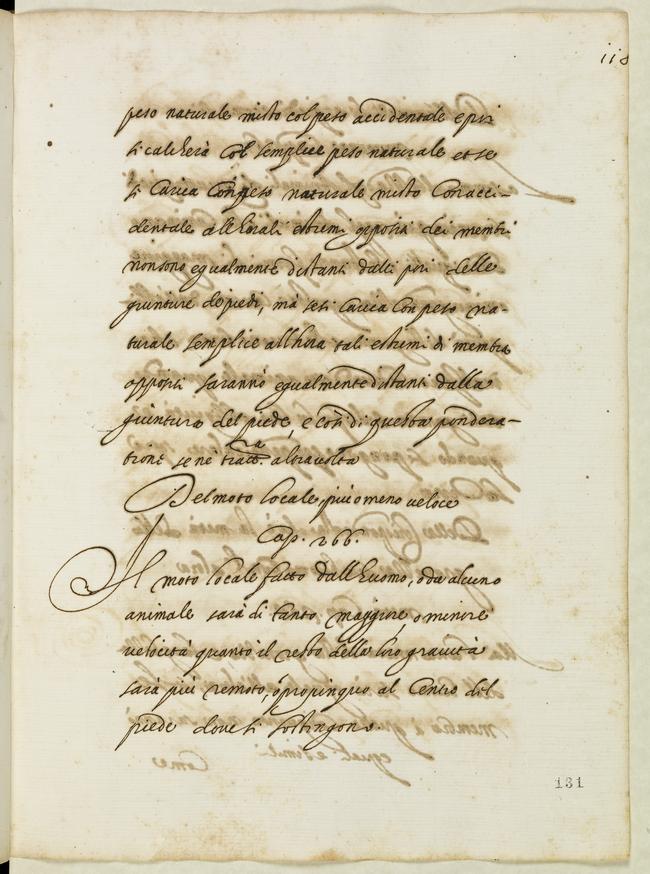 118
peso naturale misto col peso accidentale e poi
si calcherà col semplice peso naturale et se
si carica con peso naturale misto con acci-
dentale all'horali estremi oppositi dei membri
non sono egualmente distanti dalli poli delle
giunture de piedi, mà se si carica con peso na-
turale semplice all'hora tali estremi di membra
oppositi saranno egualmente distanti dalla
giuntura del piede, e così di questa pondera-
tione se nè tratt.rà altra volta
Del moto locale più o meno veloce
Cap. 266.
Il moto locale fatto dall'huomo, ò da alcuno
animale sarà di tanto maggiore o minore
velocità quanto il resto della loro gravità
sarà più remoto, ò propinquo al centro del
piede dove si sostengono
Come
131